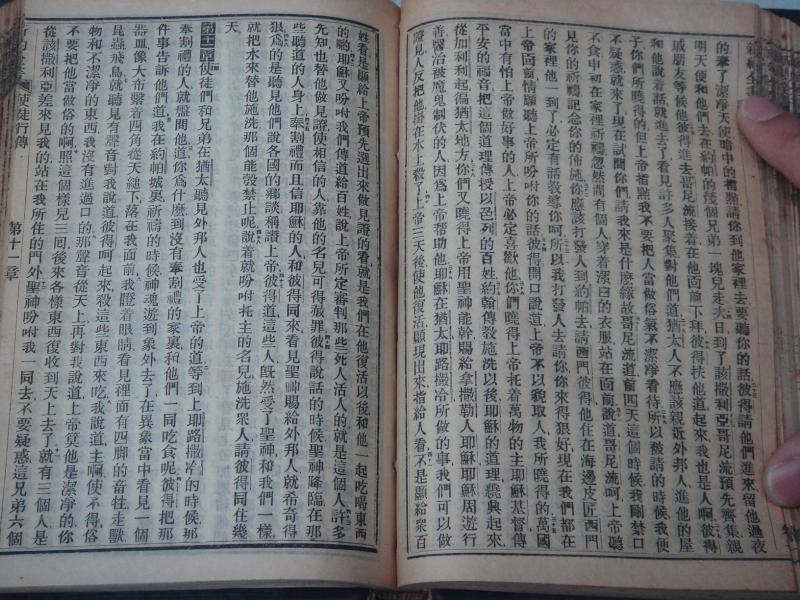 新約全書
的奉了潔淨天使暗中的指點請你到他家裡去要聽你的話彼得請他們進來留他過夜
明天便和他們去在約帕的幾個兄弟一塊兒走次日到了該撒利亞哥尼流預先齊集親
戚朋友等候他彼得進去哥尼流接着在他面前下拜彼得扶他道起來我也是人啊彼得
和他說着話就進去了看見許多人聚集對他們道猶太人不應該親近外邦人進他的屋
子你們所曉得的但上帝指點我不要把人當做俗氣不潔淨看待所以被請的時候我便
不疑惑就來了現在試問你們請我來是什麼緣故哥尼流道前四天這個時候我關禁口
不食申初在家裡祈禱忽然間有個人穿着潔白的衣服站在面前說道哥尼流呵上帝聽
見你的祈禱記念你的佈施你應該打發人到約帕去請西門彼得他住在海邊皮匠西門
的家裡他一到了必定有話教導你呵所以我打發人去請你你來得狠好現在我們都在
上帝面前情願聽上帝所吩咐你的話彼得開口說道上帝不以貌取人我所曉得的萬國
中有怕上帝做好事的人上帝必定喜歡他你們曉得上帝托着萬物的主耶穌基督傳
平安的福音把這個道理傳授以色列的百姓約翰傳教施洗以後耶穌的道理纔興起來
從加利利起徧猶太地方你們又曉得上帝用聖神能幹賜給拿撒勒人耶穌耶穌周遊行
善醫治被魔鬼制伏的人因爲上帝帮助他耶穌在猶太耶路撒冷所做的事我們可以做
證見人反把他掛在木上殺了上帝三天後使他復活顯現出來指給人看不是顯給衆百
姓看是顯給上帝預先選出來做見證的看就是我們在他復活以後和他一起吃喝東西
的喲耶穌又吩咐我們傳道給百姓說上帝所定審判那些死人活人的就是這個人許多
先知也替他做見證使相信的人靠他的名兒可得赦罪彼得說話的時候聖神降臨在那
些聽道的人身上奉割禮而且信耶穌的人和彼得同來看見聖神賜給外邦人就希奇得
狠爲的是聽見他們說各國的鄉談稱讚上帝彼得道這些人旣然受了聖神和我們一樣
就把水來替他施洗那個能彀禁止呢說着就吩咐托主的名兒施洗衆人請彼得同住幾
天
第十一章使徒們和兄弟在猶太聽見外邦人也受了上帝的道等到上耶路撒冷的時候那
奉割禮的人就盤問他道你爲什麼到沒有奉割禮的家裏和他們一同吃食呢彼得把那
件事告訴他們道我在約帕城裏祈禱的時候神魂遊到象外去了在異象當中看見一個
器皿像大布繫着四角從天縋下落在我面前我瞪着眼睛看見裡面有四脚的畜牲走獸
昆蟲飛鳥就聽見有聲音對我說道彼得呵起來殺這些東西來吃我說道主啊使不得俗
物和不潔淨的東西我沒有進過口的那聲音從天上再對我說道上帝算他是潔淨的你
不要把他當做俗的啊照這個樣兒三回後來各樣東西復收到天上去了就有三個人是
從該撒利亞差來見我的站在我所住的門外聖神吩咐我一同去不要疑惑這兄弟六個
使徒行傳
第十一章